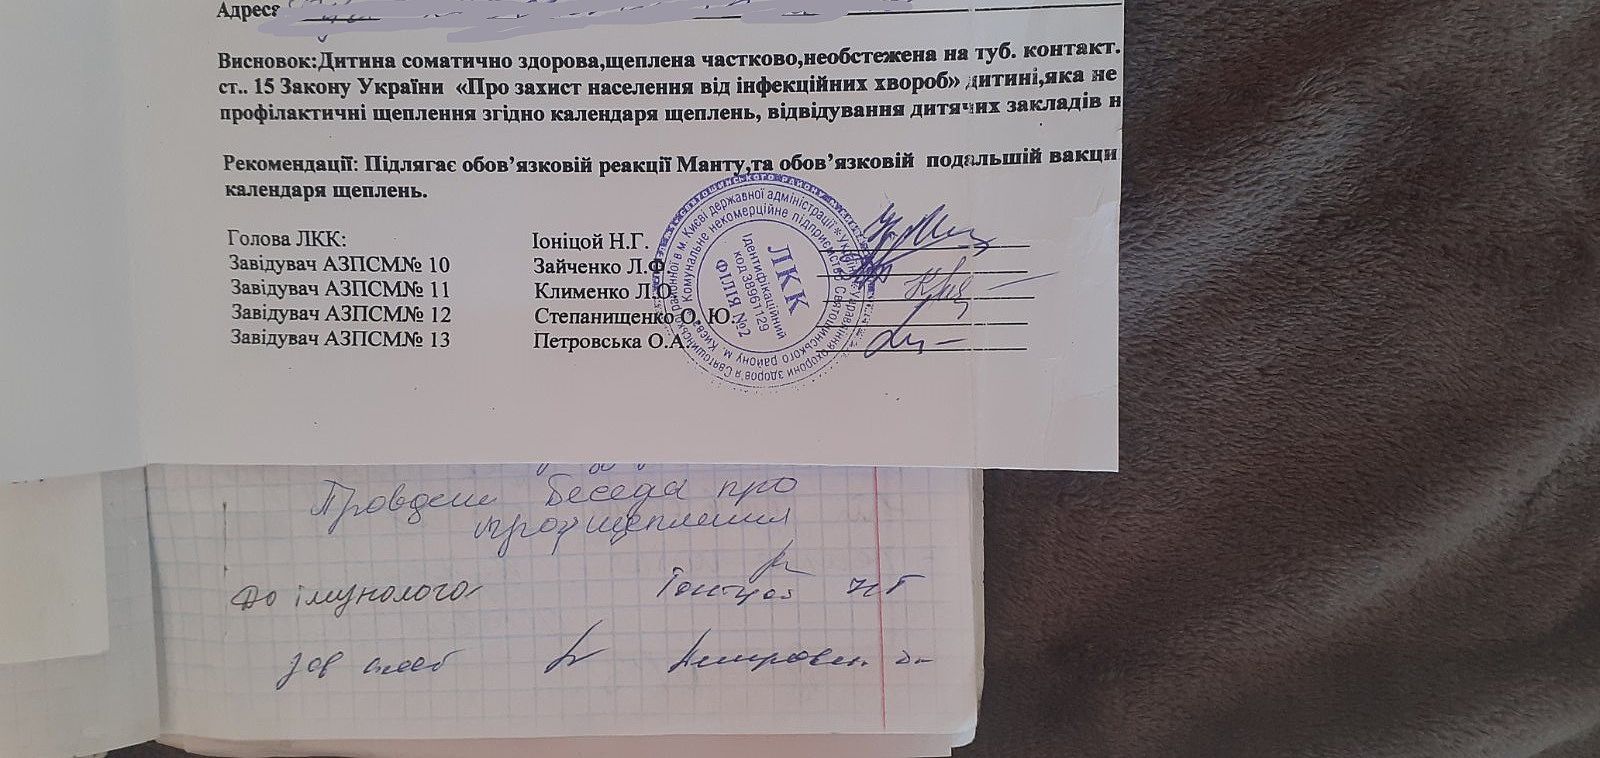 Адреса
Висновок:Дитина соматично здорова,щеплена частково,необстежена на туб. контакт.
ст.. 15 Закону України «Про захист населення від інфекційних хвороб» дитині,яка не
профілактичні щеплення згідно календаря щеплень, відвідування дитячих закладів н
Рекомендації: Підлягає обов’язковій реакції Манту,та обов’язковій подальшій вакци
календаря щеплень.
Голова ЛКК: Іоніцой Н.Г.
Завідувач АЗПСМ№ 10 Зайченко Л.Ф.
Завідувач АЗПСМ№ 11 Клименко Л.О.
Завідувач АЗПСМ№ 12 Степанищенко О. Ю.
Завідувач АЗПСМ№ 13 Петровська О.А.
ЛКК
Ідентифікаційний
код 38961129
ФІЛІЯ №2
Комунальне некомерційне підприємство
Святошинського району м. Києва
районної в м. Києві державної адміністрації
Управління охорони здоров'я Святошинської
Бесєда про
щеплення
До імунолога